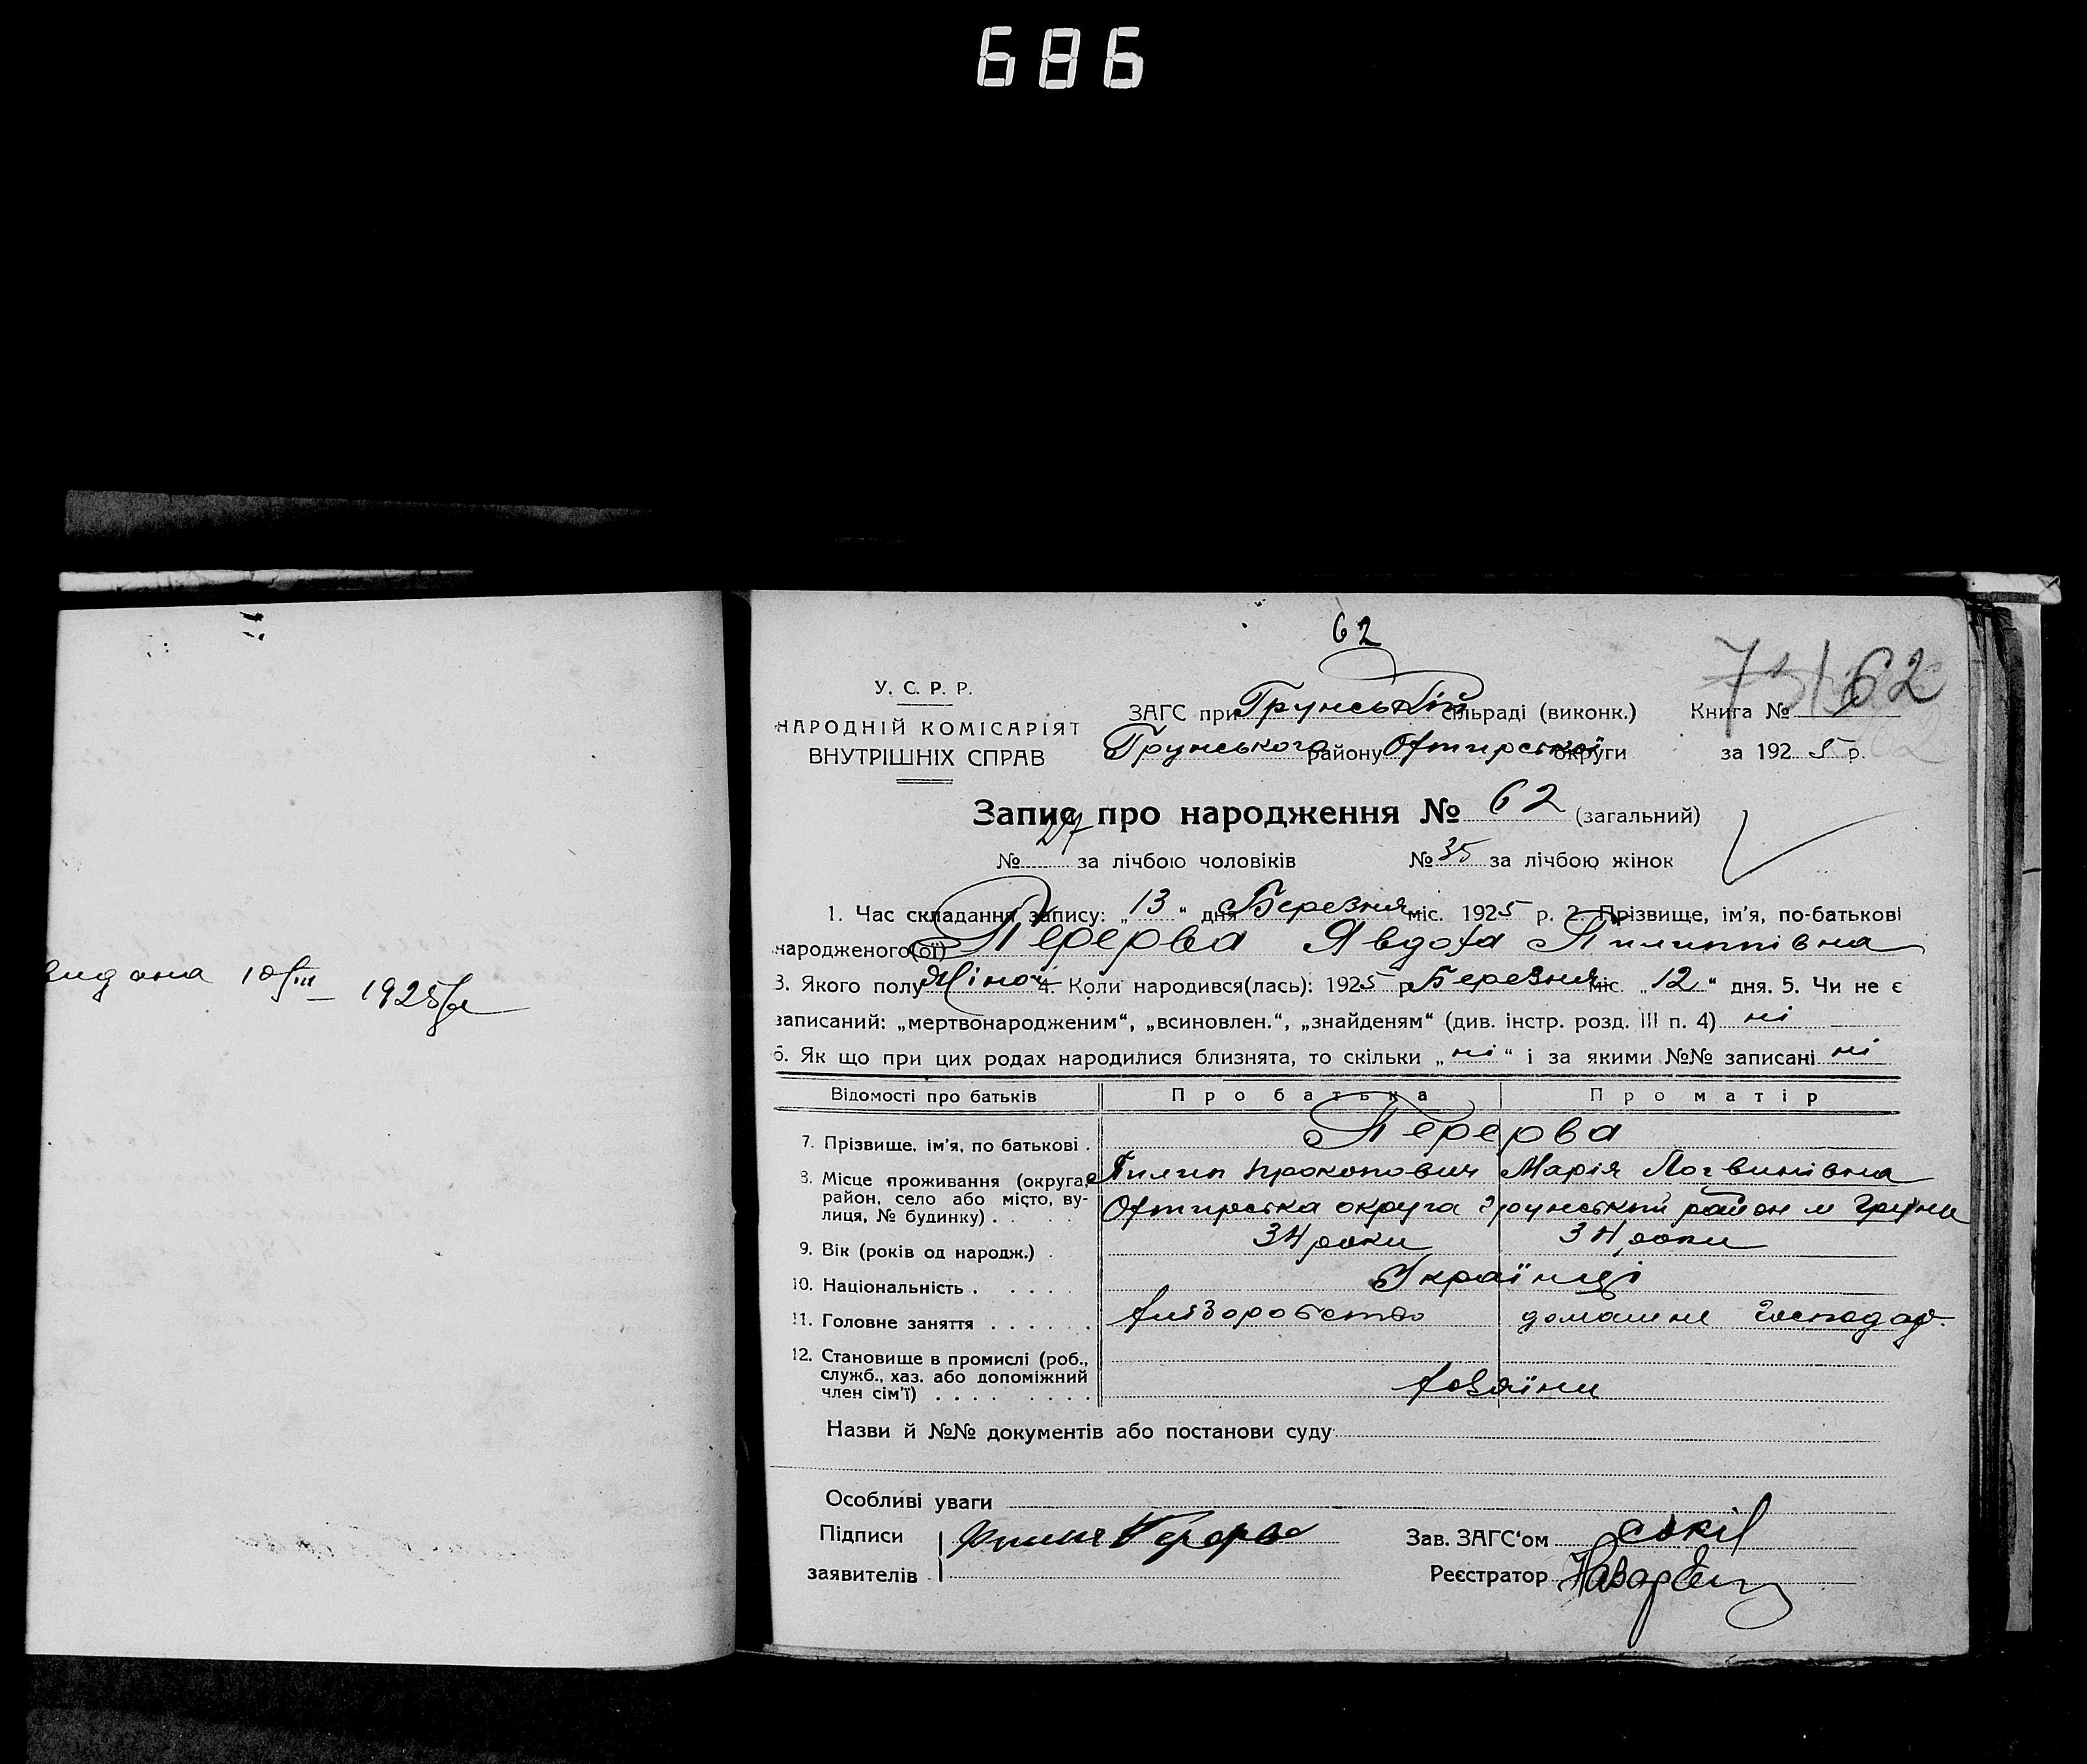 686
видана 10/III – 1925 р.
62
73/62
У. С. Р. Р.
НАРОДНІЙ КОМІСАРІЯТ
ВНУТРІШНІХ СПРАВ
ЗАГС при Грунській сільраді (виконк.) Книга №
Грунського району Охтирської округи за 1925 р.
Запис про народження № 62 (загальний)
№ 27 за лічбою чоловіків № 35 за лічбою жінок
1. Час складання запису: „13“ дня Березня міс. 1925 р. 2. Прізвище, ім'я, по-батькові
народженого(ої) Перерва Явдоха Пилиппівна
3. Якого полу Жіноч 4. Коли народився(лась): 1925 р. Березня міс. „12“ дня. 5. Чи не є
записаний: „мертвонародженим“, „всиновлен.“, „знайденям“ (див. інстр. розд. III п. 4) ні
6. Як що при цих родах народилися близнята, то скільки „ні“ і за якими №№ записані ні
Відомості про батьків Про батька Про матір
7. Прізвище, ім'я, по батькові . Перерва
Пилип Прокопович Марія Логвинівна
8. Місце проживання (округа, район, село або місто, вулиця, № будинку) . Охтирська округа Грунський район м Грунь
9. Вік (років од народж.) . 34 роки 34 роки
10. Національність . . . . . Українці
11. Головне заняття . . . . . . хліборобство домашнє господар.
12. Становище в промислі (роб., служб., хаз. або допоміжний член сім'ї) . . . . . . . . хозяїни
Назви й №№ документів або постанови суду
Особливі уваги
Підписи Перерва Зав. ЗАГС'ом Сокіл
заявителів Реєстратор